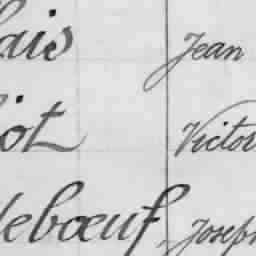 lais Jean
iot Victor
lebœuf, Joseph